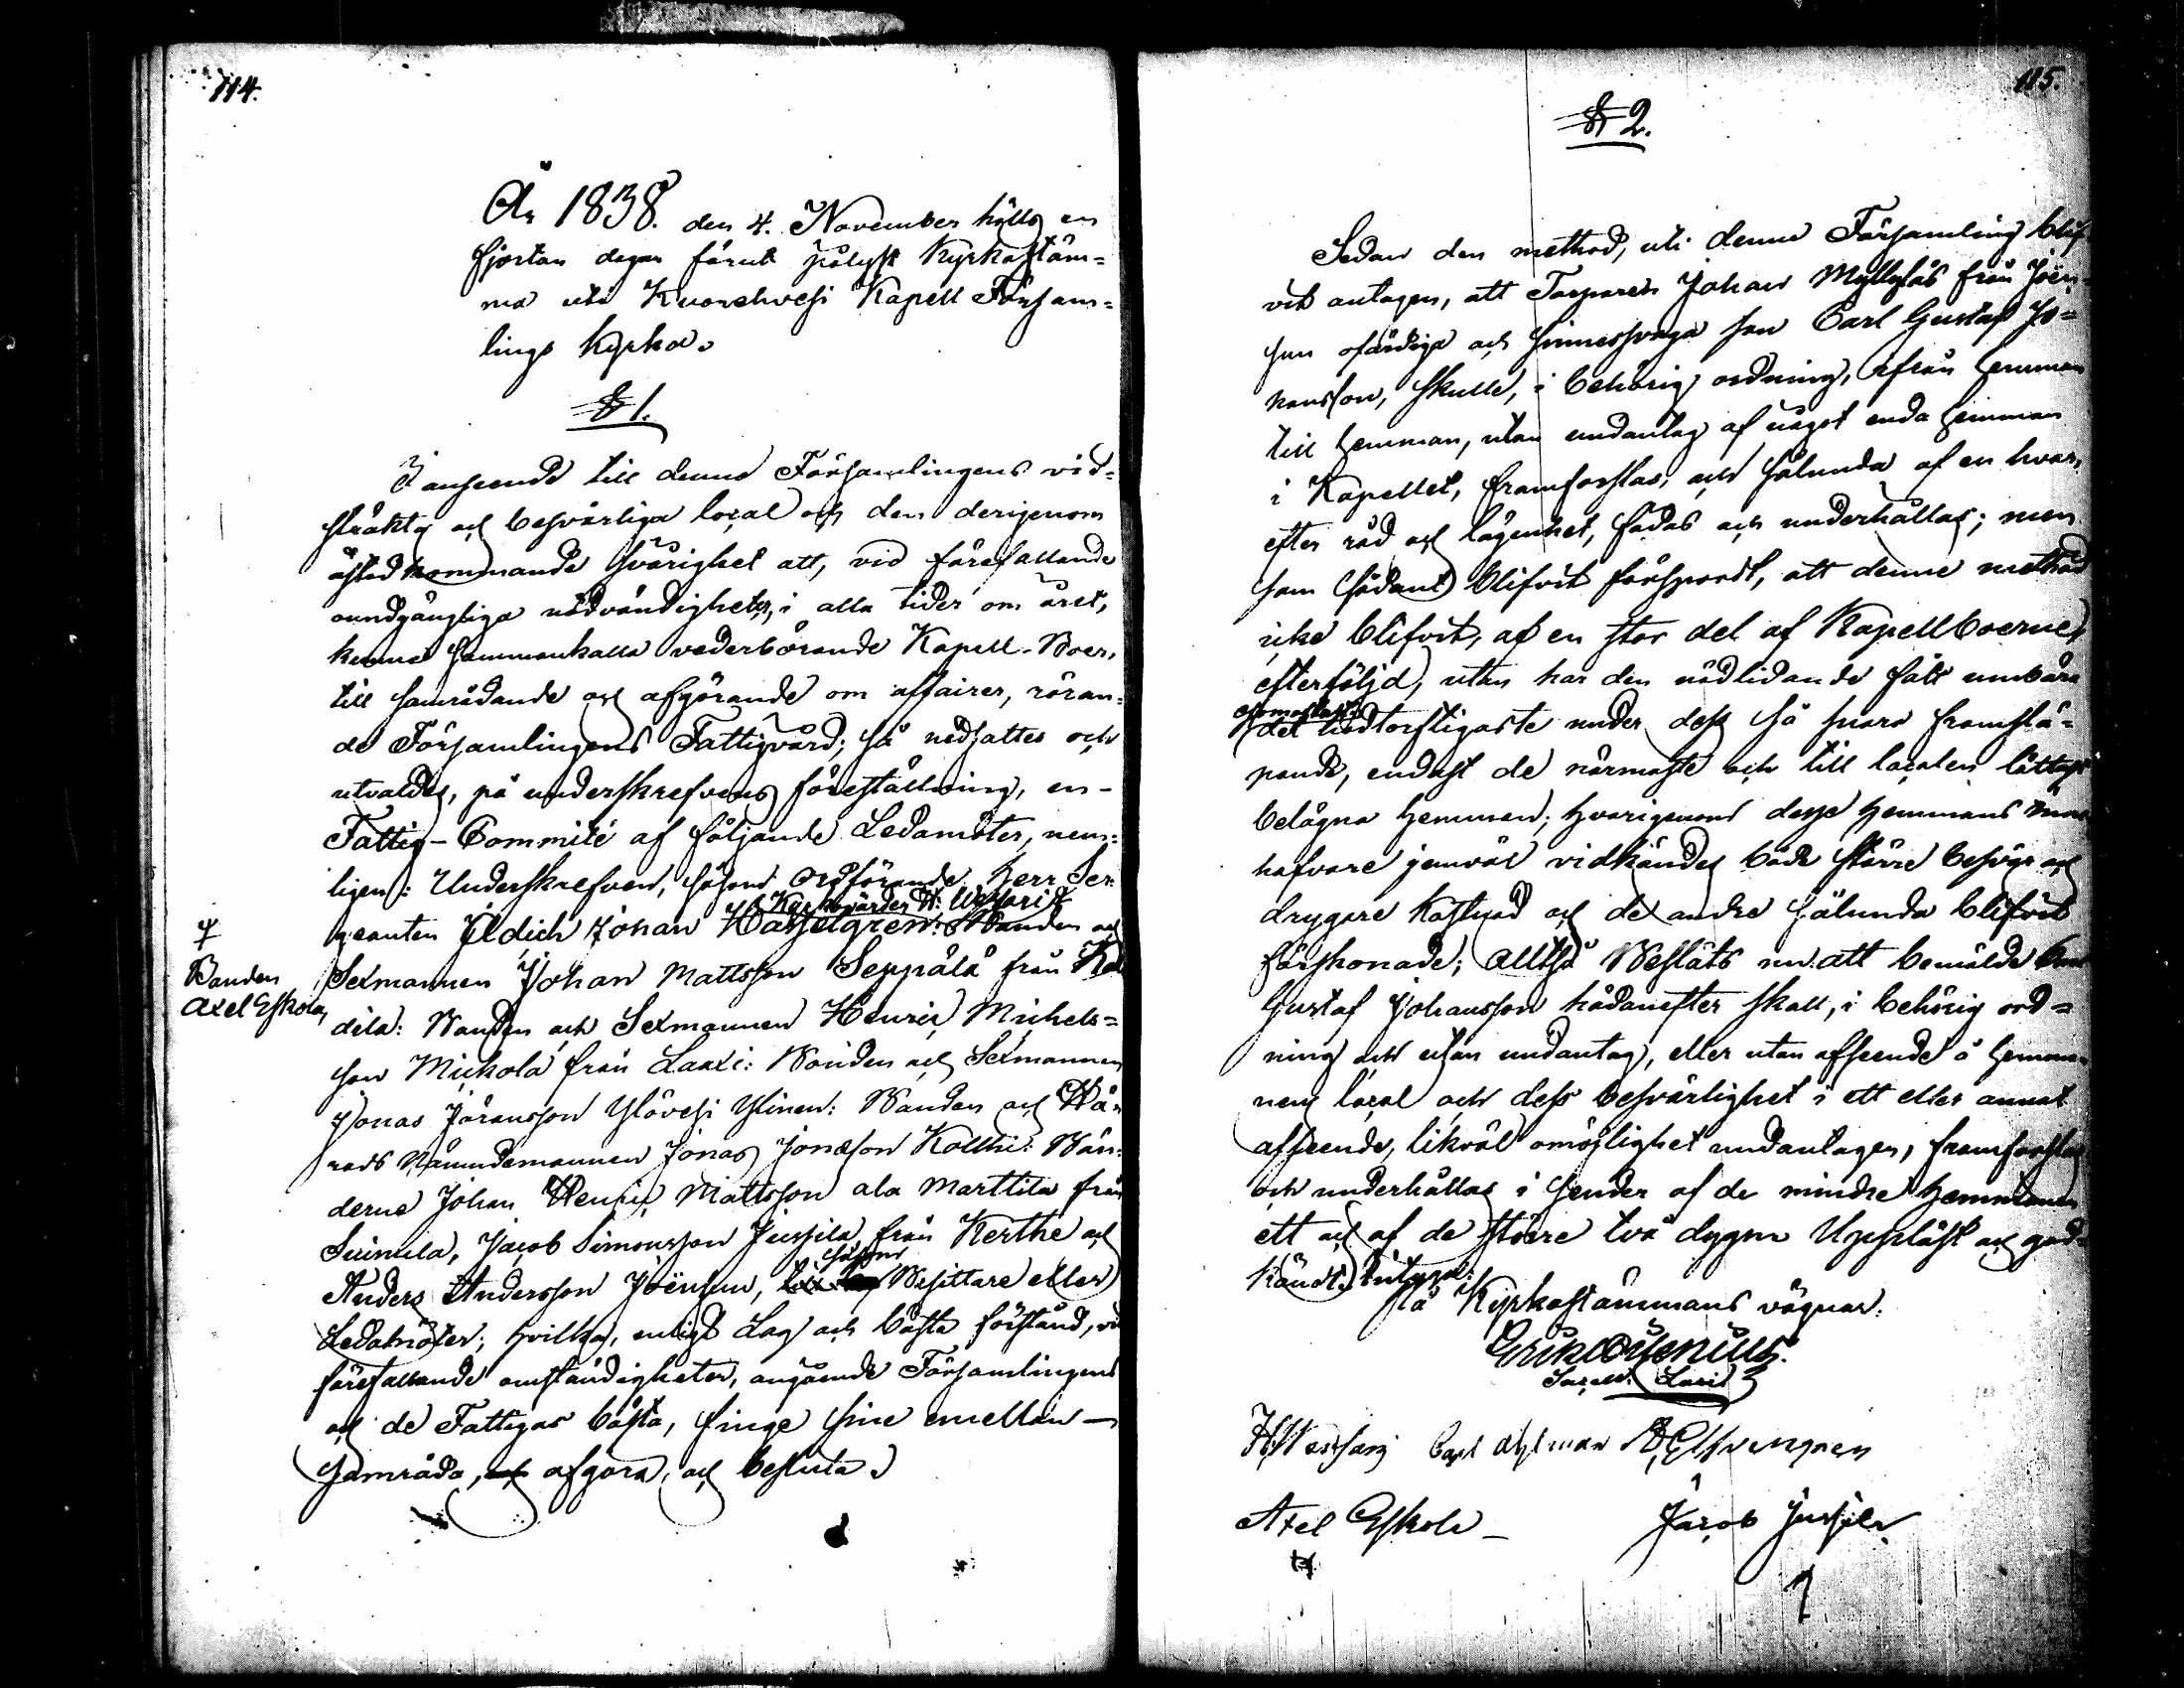 114.
År 1838. den 4. November hölls en
fjorton dagar förut pålyst Kyrkostäm=
ma uti Kuorehvesi Kapell Försams=
lings Kyrka.
§ 1.
I anseende till denne Församlingens vid=
sträkta och besvärliga local och den derigenom
åstadkommande svårighet att, vid förefallande
oundgängliga nödvändigheter, i alla tider om året,
kunna sammankalla vederbörande Kapell-Boer,
till samrådande och afgörande om affairer, röran=
de Församlingens Fattigvård; så nedsattes och
utvaldes, på underskrefvens föreställning, en-
Fattig-Commité af följande Ledamöter, nem=
ligen: Underskrefven, såsom Ordförande, Herr Ser=
Kyrkovärden H:
geanten Johan Hasselgren: Bonden och
Bonden
Axel Eskola,
Sexmannen Johan Mattsson Seppälä från
dila: Bonden och Sexmannen Henric Michels=
son Mickola från Laaxi: Bonden och Sexmannen
Jonas Jöransson Ylövesi Ylinen: Bonden och Hä=
rads Nämndemannen Jonas Jonasson Kolkki: Bön=
derne Johan Henric Mattsson ala Marttila från
Suinula, Jacob Simonsson Jussila, från Kerthe och
såsom
Anders Andersson Joënsuu, Besittare eller
Ledamöter; hvilka, enligt Lag och bästa förstånd, vid
förefallande omständigheter, angående Församlingens
och de Fattigas bästa, finge sine emellan-
samråda, och afgöra, och besluta.
115.
§ 2.
Sedan den method, uti denne Församling blif=
vit antagen, att Torparen Johan Myllyläs från Joën=
suu ofärdiga och sinnessvaga son Carl Gustaf Jo=
hansson, skulle, i behörig ordning, ifrån hemman
till hemman, utan undantag af något enda hemman
i Kapellet, framforslas, och sålunda af en hvar,
efter råd och lägenhet, födas och underhållas; men
som sådant blifvit försport, att denne method
icke blifvit, af en stor del af Kapellboerne,
efterföljd, utan har den nödlidande fått umbära
det nödtorftigaste under dess så snara framslä=
pande, endast de närmaste och till localen lättast
belägna hemman; hvarigenom desse hemmans inne=
hafvare jemväl vidkändes både större besvär och
drygare kostnad och de andre sålunda blifvit
förskonade; Alltså Besläts nu att bemälde Carl
Gustaf Johansson hädanefter skall, i behörig ord=
ning och utan undantag, eller utan afseende å hemma=
nens local och dess besvärlighet i ett eller annat
afseende, likväl omöjlighet undantagen, framforslas
och underhållas i sender af de mindre hemmanen
ett och af de större två dygn. Uppläst och god=
kändt, intygar:
På Kyrkostämmans vägnar:
Axel Eskola
Jacob Jussila